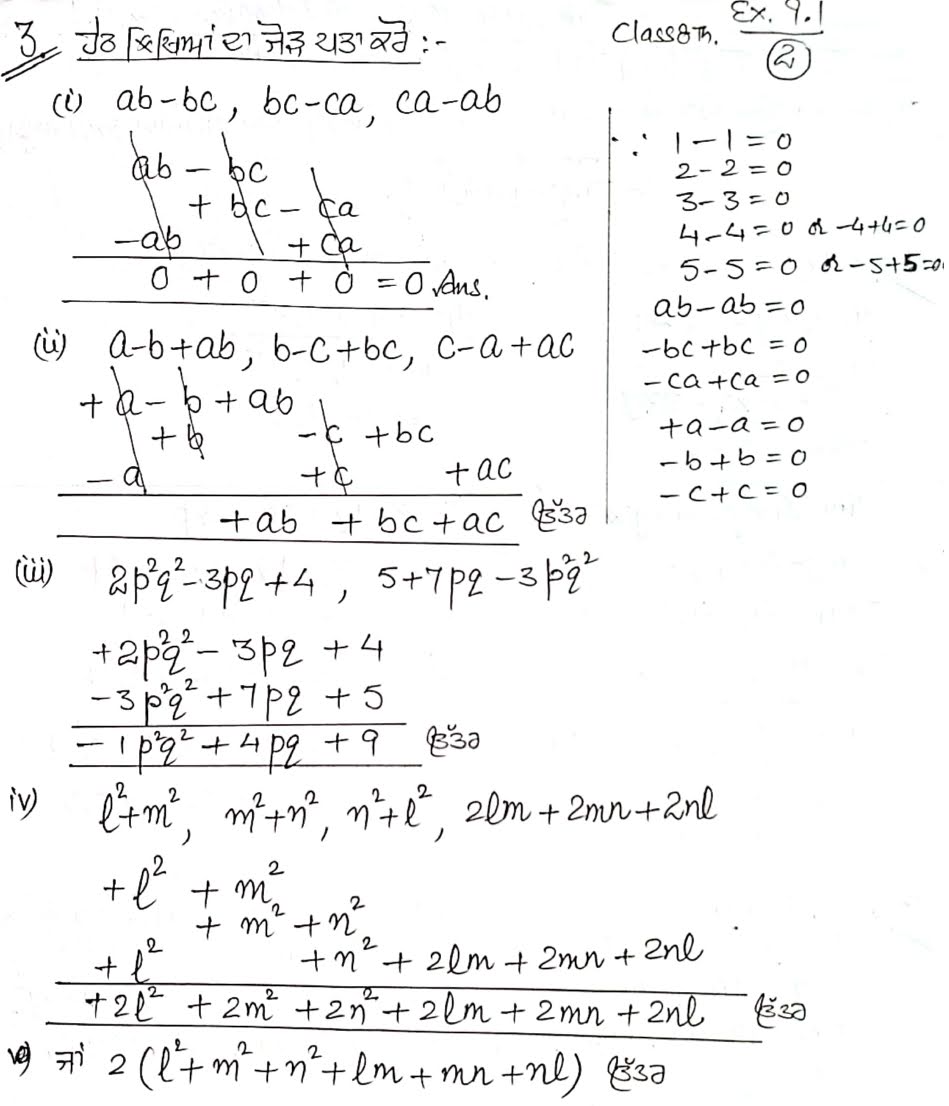 Class 8th. Ex. 9.1
②
3. ਹੇਠ ਲਿਖਿਆਂ ਦਾ ਜੋੜ ਪਤਾ ਕਰੋ :-
(i) ab-bc, bc-ca, ca-ab
ab - bc
+ bc - ca
-ab + ca
0 + 0 + 0 = 0 Ans.
∵ 1-1=0
2-2=0
3-3=0
4-4=0 or -4+4=0
5-5=0 or -5+5=0
ab-ab=0
-bc+bc=0
-ca+ca=0
+a-a=0
-b+b=0
-c+c=0
(ii) a-b+ab, b-c+bc, c-a+ac
+a-b+ab
+b -c +bc
-a +c +ac
+ab +bc+ac ਉੱਤਰ
(iii) 2p²q²-3pq+4, 5+7pq-3p²q²
+2p²q²-3pq+4
-3p²q²+7pq+5
-1p²q²+4pq+9 ਉੱਤਰ
iv) l²+m², m²+n², n²+l², 2lm+2mn+2nl
+l² +m²
+m²+n²
+l² +n²+2lm+2mn+2nl
+2l²+2m²+2n²+2lm+2mn+2nl ਉੱਤਰ
ਜਾਂ 2(l²+m²+n²+lm+mn+nl) ਉੱਤਰ